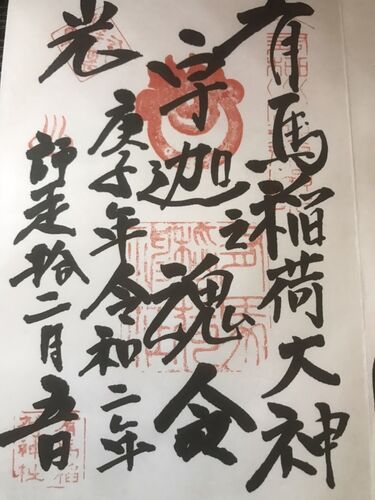 有馬稲荷大神
宇迦之魂命
庚子年令和二年
光
師走拾二月五日